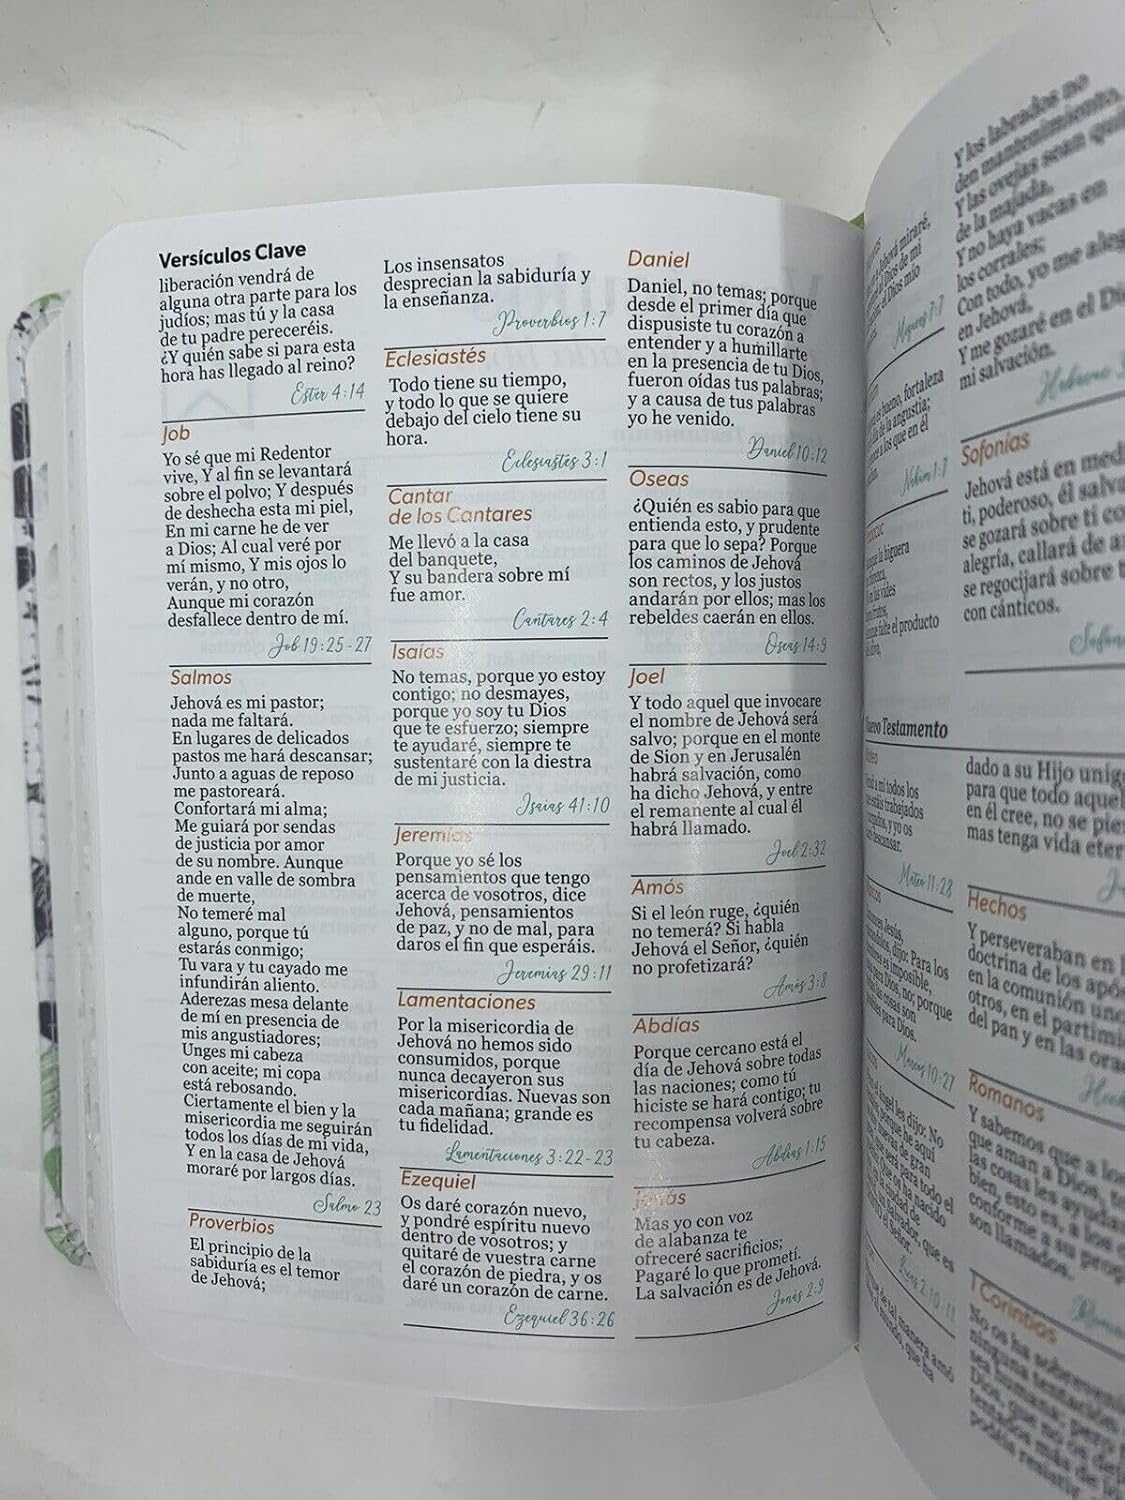 Versículos Clave
liberación vendrá de
alguna otra parte para los
judíos; mas tú y la casa
de tu padre pereceréis.
¿Y quién sabe si para esta
hora has llegado al reino?
Ester 4:14
Job
Yo sé que mi Redentor
vive, Y al fin se levantará
sobre el polvo; Y después
de deshecha esta mi piel,
En mi carne he de ver
a Dios; Al cual veré por
mí mismo, Y mis ojos lo
verán, y no otro,
Aunque mi corazón
desfallece dentro de mí.
Job 19:25-27
Salmos
Jehová es mi pastor;
nada me faltará.
En lugares de delicados
pastos me hará descansar;
Junto a aguas de reposo
me pastoreará.
Confortará mi alma;
Me guiará por sendas
de justicia por amor
de su nombre. Aunque
ande en valle de sombra
de muerte,
No temeré mal
alguno, porque tú
estarás conmigo;
Tu vara y tu cayado me
infundirán aliento.
Aderezas mesa delante
de mí en presencia de
mis angustiadores;
Unges mi cabeza
con aceite; mi copa
está rebosando.
Ciertamente el bien y la
misericordia me seguirán
todos los días de mi vida,
Y en la casa de Jehová
moraré por largos días.
Salmo 23
Proverbios
El principio de la
sabiduría es el temor
de Jehová;
Los insensatos
desprecian la sabiduría y
la enseñanza.
Proverbios 1:7
Eclesiastés
Todo tiene su tiempo,
y todo lo que se quiere
debajo del cielo tiene su
hora.
Eclesiastés 3:1
Cantar
de los Cantares
Me llevó a la casa
del banquete,
Y su bandera sobre mí
fue amor.
Cantares 2:4
Isaías
No temas, porque yo estoy
contigo; no desmayes,
porque yo soy tu Dios
que te esfuerzo; siempre
te ayudaré, siempre te
sustentaré con la diestra
de mi justicia.
Isaías 41:10
Jeremías
Porque yo sé los
pensamientos que tengo
acerca de vosotros, dice
Jehová, pensamientos
de paz, y no de mal, para
daros el fin que esperáis.
Jeremías 29:11
Lamentaciones
Por la misericordia de
Jehová no hemos sido
consumidos, porque
nunca decayeron sus
misericordias. Nuevas son
cada mañana; grande es
tu fidelidad.
Lamentaciones 3:22-23
Ezequiel
Os daré corazón nuevo,
y pondré espíritu nuevo
dentro de vosotros; y
quitaré de vuestra carne
el corazón de piedra, y os
daré un corazón de carne.
Ezequiel 36:26
Daniel
Daniel, no temas; porque
desde el primer día que
dispusiste tu corazón a
entender y a humillarte
en la presencia de tu Dios,
fueron oídas tus palabras;
y a causa de tus palabras
yo he venido.
Daniel 10:12
Oseas
¿Quién es sabio para que
entienda esto, y prudente
para que lo sepa? Porque
los caminos de Jehová
son rectos, y los justos
andarán por ellos; mas los
rebeldes caerán en ellos.
Oseas 14:9
Joel
Y todo aquel que invocare
el nombre de Jehová será
salvo; porque en el monte
de Sion y en Jerusalén
habrá salvación, como
ha dicho Jehová, y entre
el remanente al cual él
habrá llamado.
Joel 2:32
Amós
Si el león ruge, ¿quién
no temerá? Si habla
Jehová el Señor, ¿quién
no profetizará?
Amós 3:8
Abdías
Porque cercano está el
día de Jehová sobre todas
las naciones; como tú
hiciste se hará contigo; tu
recompensa volverá sobre
tu cabeza.
Abdías 1:15
Jonás
Mas yo con voz
de alabanza te
ofreceré sacrificios;
Pagaré lo que prometí.
La salvación es de Jehová.
Jonás 2:9
Jehová miraré,
Dios de mi
Dios mío
Miqueas 7:7
es bueno, fortaleza
día de la angustia;
a los que en él
Nahúm 1:7
la higuera
las vides
falte el producto
Y los labrados no
den mantenimiento,
Y las ovejas sean
de la majada,
Y no haya vacas en
los corrales;
Con todo, yo me
en Jehová,
Y me gozaré en el
mi salvación.
Sofonías
Jehová está en
ti, poderoso, él
se gozará sobre ti
alegría, callará de
se regocijará sobre
con cánticos.
Nuevo Testamento
a mí todos los
estáis trabajados
y yo os
descansar.
Mateo 11:28
Jesús,
dijo: Para los
es imposible,
Dios, no; porque
las cosas son
para Dios.
Marcos 10:27
el ángel les dijo: No
porque he aquí
de gran
que será para todo el
ha nacido
la ciudad de
Salvador, que es
el Señor.
Lucas 2:10-11
de tal manera amó
al mundo, que ha
dado a su Hijo
para que todo aquel
en él cree, no se
mas tenga vida
Hechos
Y perseveraban en
doctrina de los
en la comunión
otros, en el
del pan y en las
Romanos
Y sabemos que a los
que aman a Dios,
las cosas les
bien, esto es, a los
conforme a su
son llamados.
1 Corintios
No os ha
ninguna tentación
sea humana; pero
Dios, que no os
tentados más de lo
podéis